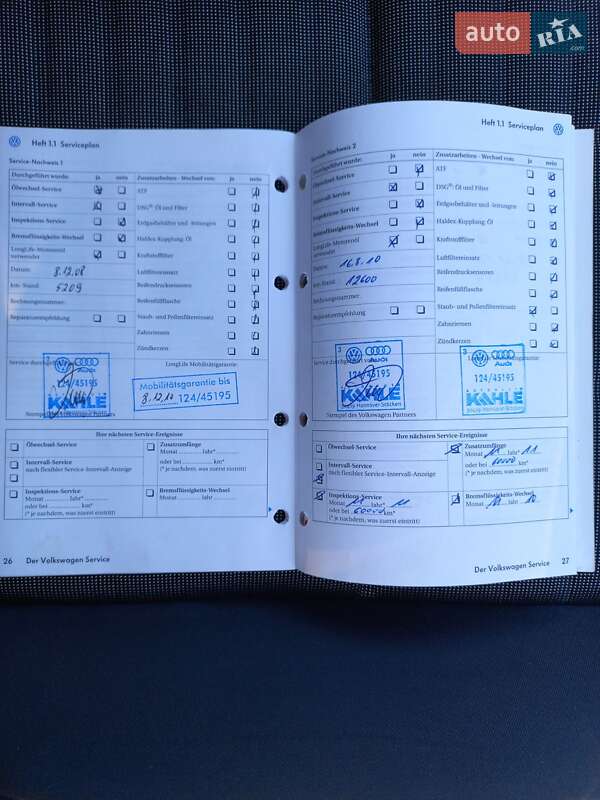 auto RIA .com
Heft 1.1 Serviceplan
Service-Nachweis 1
Durchgeführt wurde: ja nein Zusatzarbeiten - Wechsel von: ja nein
Ölwechsel-Service ATF
Intervall-Service DSG® Öl und Filter
Inspektions-Service Erdgasbehälter und -leitungen
Bremsflüssigkeits-Wechsel Haldex-Kupplung: Öl
LongLife-Motorenöl verwendet Kraftstofffilter
Datum: 8.12.08 Luftfiltereinsatz
km-Stand: 5209 Reifendrucksensoren
Rechnungsnummer: Reifenfüllflasche
Reparaturempfehlung Staub- und Pollenfiltereinsatz
Zahnriemen
Zündkerzen
Service durchgeführt LongLife Mobilitätsgarantie:
3
Audi
124/45195
KAHLE
Mobilitätsgarantie bis
8.12.10 124/45195
Stempel des Volkswagen Partners
Ihre nächsten Service-Ereignisse
Ölwechsel-Service
Intervall-Service
nach flexibler Service-Intervall-Anzeige
Inspektions-Service
Monat Jahr*
oder bei km*
(* je nachdem, was zuerst eintritt)
Zusatzumfänge
Monat Jahr*
oder bei km*
(* je nachdem, was zuerst eintritt)
Bremsflüssigkeits-Wechsel
Monat Jahr
26 Der Volkswagen Service
Heft 1.1 Serviceplan
Service-Nachweis 2
Durchgeführt wurde: ja nein Zusatzarbeiten - Wechsel von: ja nein
Ölwechsel-Service ATF
Intervall-Service DSG® Öl und Filter
Inspektions-Service Erdgasbehälter und -leitungen
Bremsflüssigkeits-Wechsel Haldex-Kupplung: Öl
LongLife-Motorenöl verwendet Kraftstofffilter
Datum: 16.8.10 Luftfiltereinsatz
km-Stand: 12600 Reifendrucksensoren
Rechnungsnummer: Reifenfüllflasche
Reparaturempfehlung Staub- und Pollenfiltereinsatz
Zahnriemen
Zündkerzen
Service durchgeführt von: LongLife Mobilitätsgarantie:
3
Audi
124/45195
KAHLE
3
Audi
124/45195
KAHLE
Stempel des Volkswagen Partners
Ihre nächsten Service-Ereignisse
Ölwechsel-Service
Intervall-Service
nach flexibler Service-Intervall-Anzeige
Inspektions-Service
Monat 11 Jahr* 11
oder bei 60000 km*
(* je nachdem, was zuerst eintritt)
Zusatzumfänge
Monat 11 Jahr* 11
oder bei 60000 km*
(* je nachdem, was zuerst eintritt)
Bremsflüssigkeits-Wechsel
Monat 11 Jahr 10
Der Volkswagen Service 27